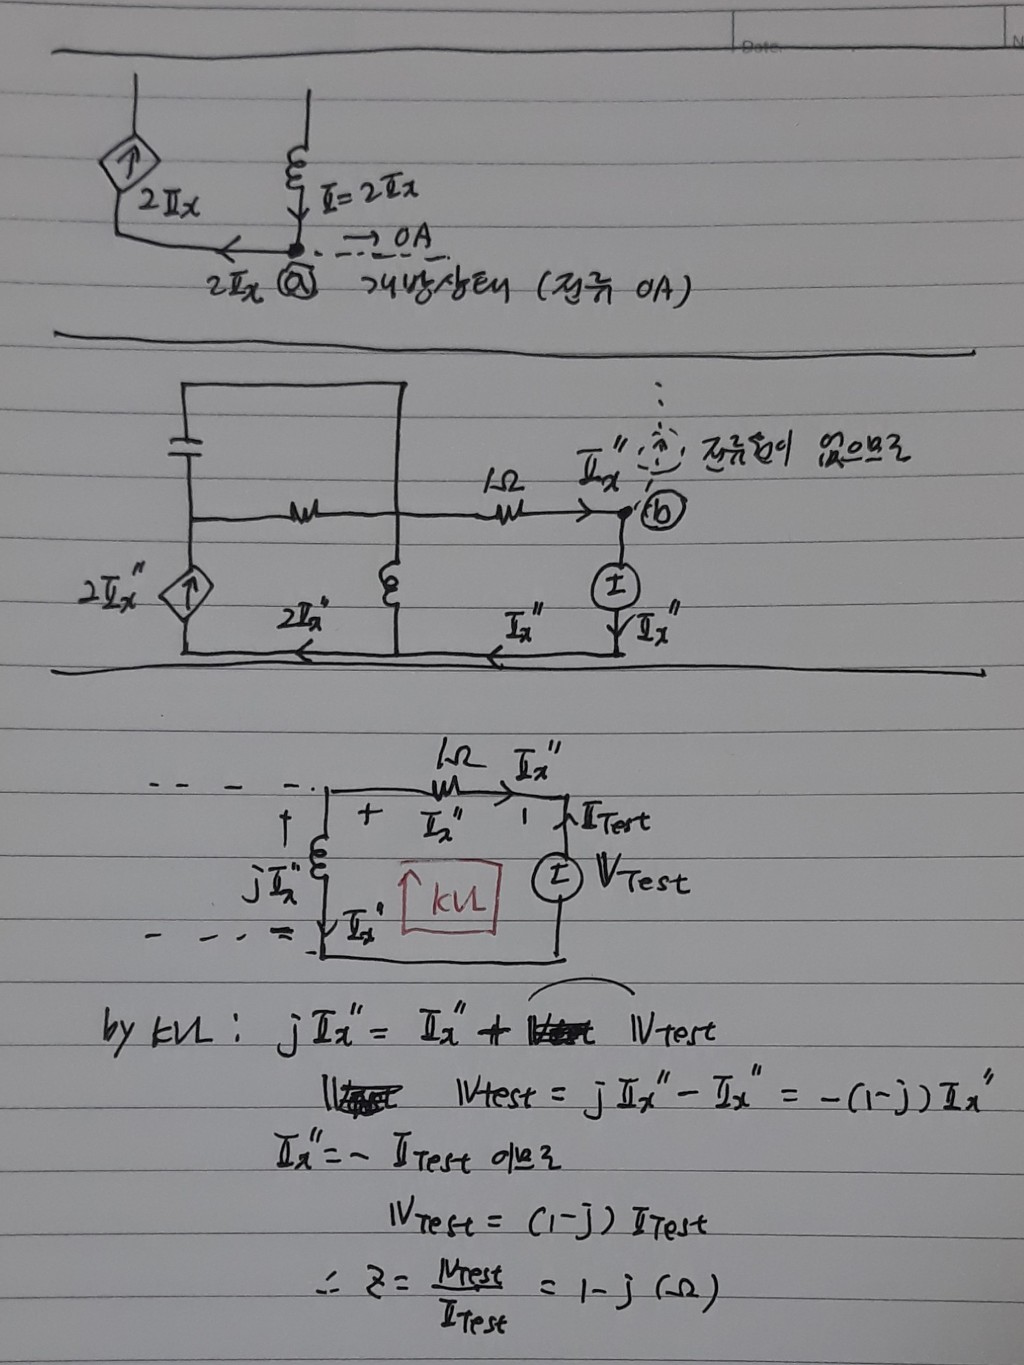 Date.
N
2Ix
I = 2Ix
→ 0A
2Ix ⓐ 개방상태 (전류 0A)
Ix" 전류원이 없으므로
1Ω
ⓑ
2Ix"
I
2Ix" Ix" Ix"
1Ω Ix"
+ Ix" ITest
jIx" I VTest
KVL
Ix"
by KVL : jIx" = Ix" + VTest
VTest = jIx" - Ix" = -(1-j) Ix"
Ix" = - ITest 이므로
VTest = (1-j) ITest
∴ Z = VTest / ITest = 1-j (Ω)